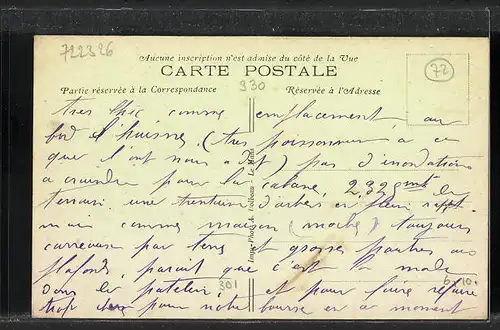 722326
Aucune inscription n'est admise du côté de la Vue
CARTE POSTALE
72
Partie réservée à la Correspondance
930
Réservée à l'Adresse
très chic comme emplacement au
bord l'huisne, (très poissonneux à ce
que l'ont nous a dit) pas d'inondations
à craindre pour la cabane, 2.325 mt de
terrain une trentaine d'arbres en plein
mais comme maison (moche) toujours
carreaux par terre et grosses poutres aux
plafonds, parait que c'est la mode
dans le patelin, et pour faire refaire
trop cher pour notre bourse en ce moment
301
6 - 10
Impr.-Phot. A. - Le Mans